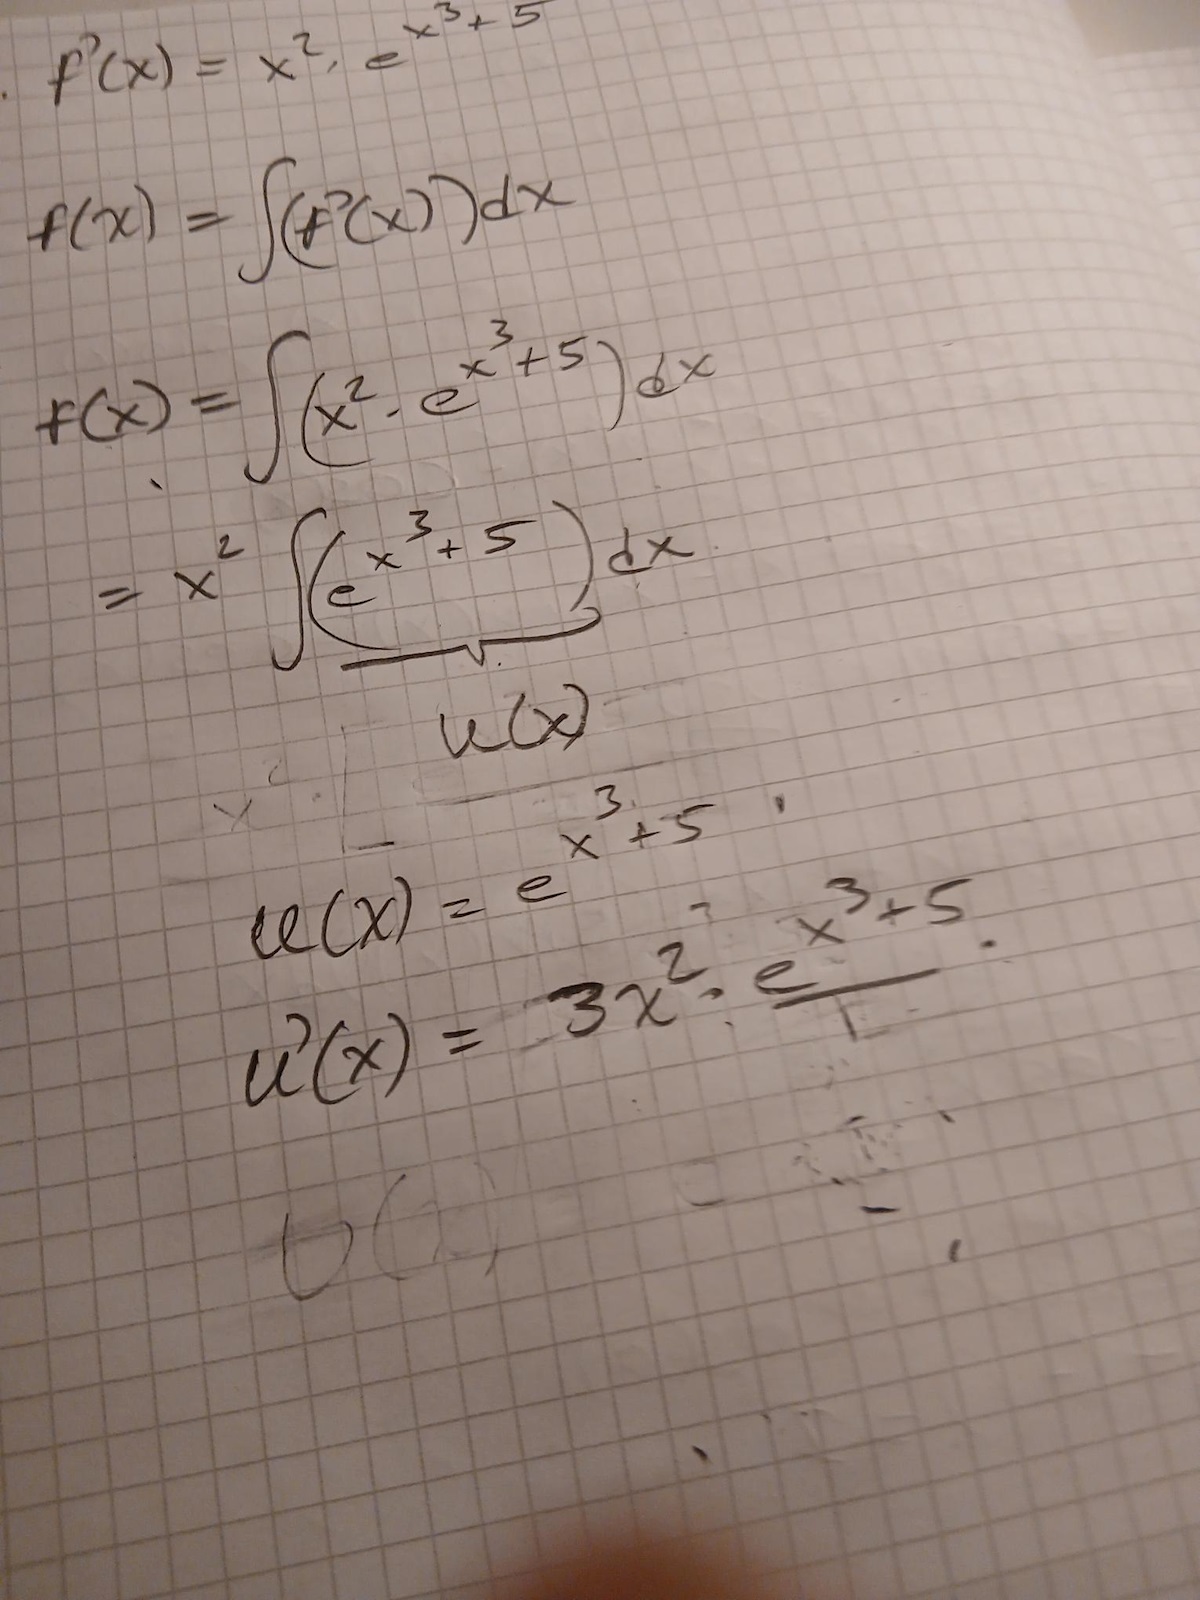 . f'(x) = x². e^x³+5
f(x) = ∫(f'(x))dx
f(x) = ∫(x² · e^x³+5)dx
= x² ∫(e^x³+5)dx
u(x)
u(x) = e^x³+5
u'(x) = 3x² · e^x³+5